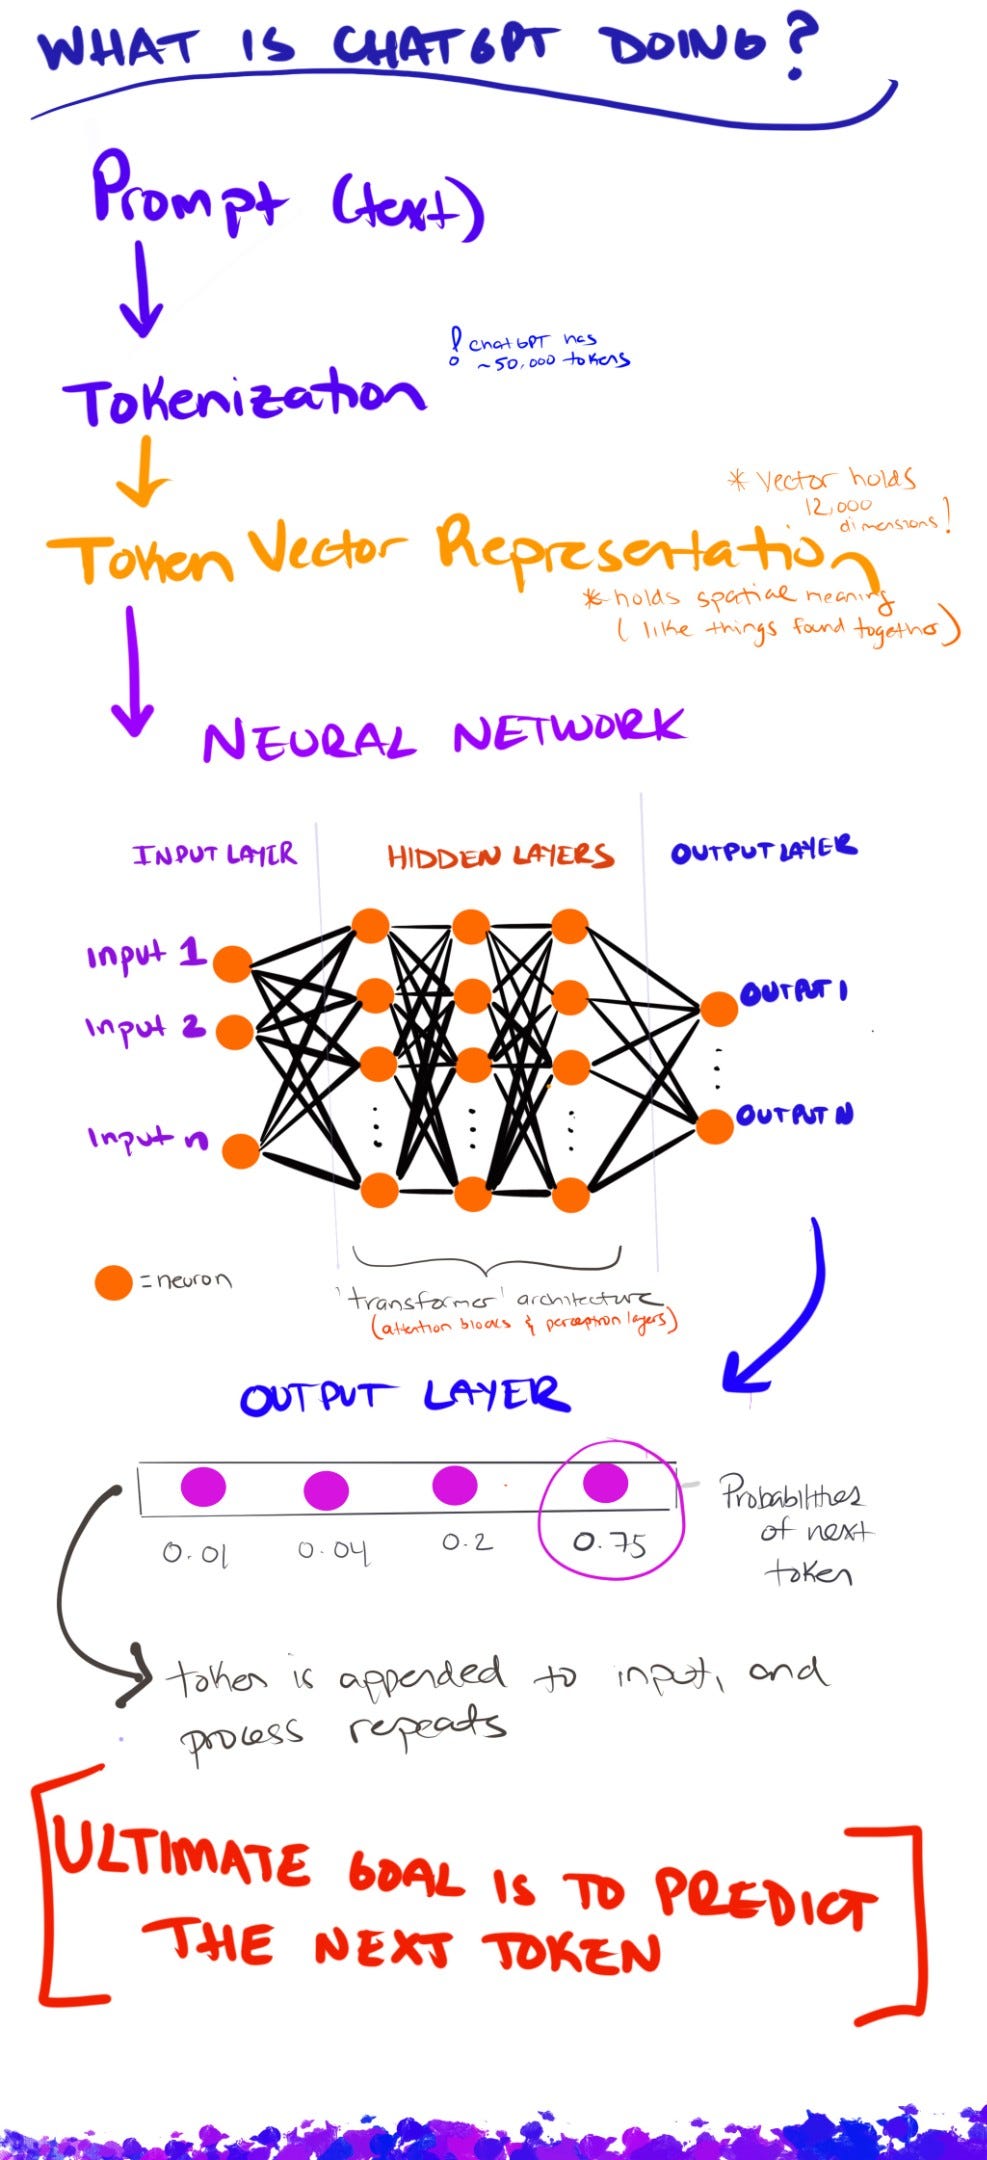 WHAT IS CHATGPT DOING?
Prompt (text)
! ChatGPT has
~50,000 tokens
Tokenization
* Vector holds
12,000
dimensions!
Token Vector Representation
* holds spatial meaning
(like things found together)
NEURAL NETWORK
INPUT LAYER
HIDDEN LAYERS
OUTPUT LAYER
Input 1
Input 2
Input n
OUTPUT 1
OUTPUT N
= neuron
'transformer' architecture
(attention blocks & perceptron layers)
OUTPUT LAYER
0.01
0.04
0.2
0.75
Probabilities
of next
token
token is appended to input, and
process repeats
ULTIMATE GOAL IS TO PREDICT
THE NEXT TOKEN